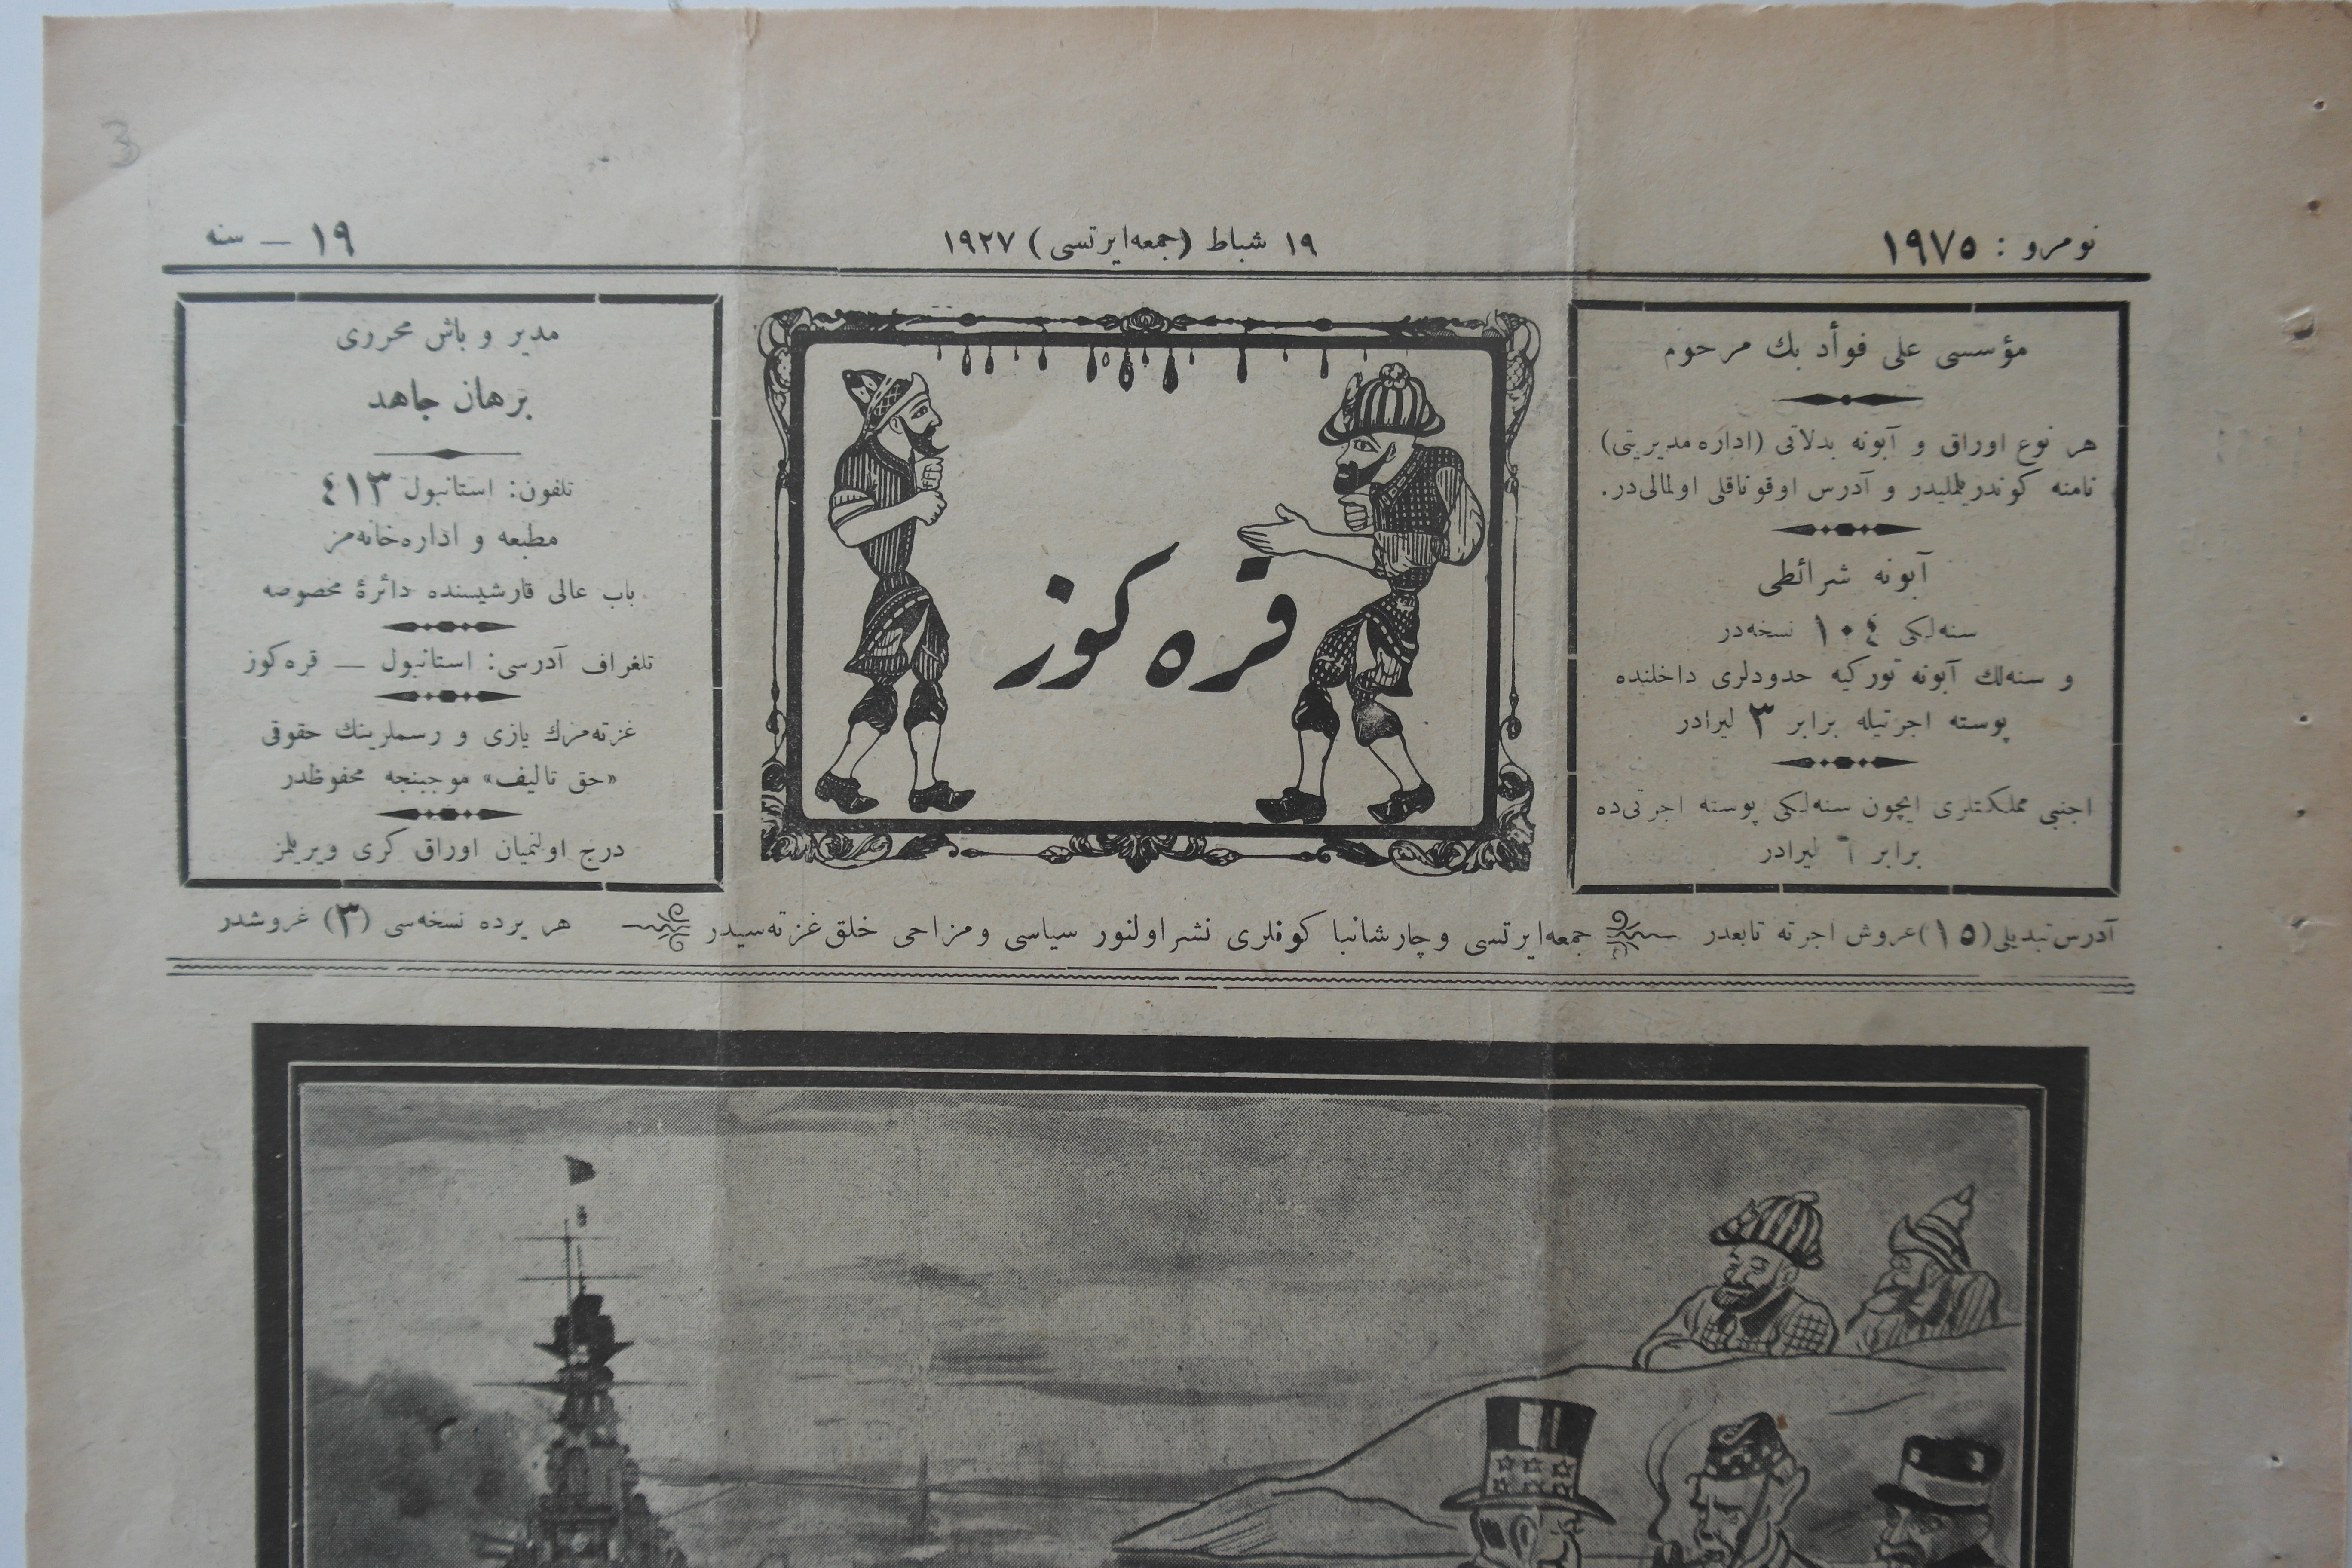 نومرو : ١٩٧٥
١٩ شباط (جمعه‌ایرتسی) ١٩٢٧
١٩ — سنه
مؤسسی علی فوأد بك مرحوم
هر نوع اوراق و آبونه بدلاتی (اداره مدیریتی)
نامنه كوندریلملیدر و آدرس اوقوناقلی اولمالی‌در.
آبونه شرائطی
سنه‌لكی ١٠٤ نسخه‌در
و سنه‌لك آبونه توركیه حدودلری داخلنده
پوسته اجرتیله برابر ٣ لیرادر
اجنبی مملكتلری ایچون سنه‌لكی پوسته اجرتی‌ده
برابر ٦ لیرادر
قره كوز
مدیر و باش محرری
برهان جاهد
تلفون: استانبول ٤١٣
مطبعه و اداره‌خانه‌مز
باب عالی قارشیسنده دائرۀ مخصوصه
تلغراف آدرسی: استانبول — قره كوز
غزته‌مزك یازی و رسملرینك حقوقی
«حق تالیف» موجبنجه محفوظدر
درج اولنمیان اوراق كری ویریلمز
آدرس تبدیلی (١٥) غروش اجرته تابعدر
جمعه‌ایرتسی و چارشانبا كونلری نشر اولنور سیاسی و مزاحی خلق غزته‌سیدر
هر یرده نسخه‌سی (٣) غروشدر
3